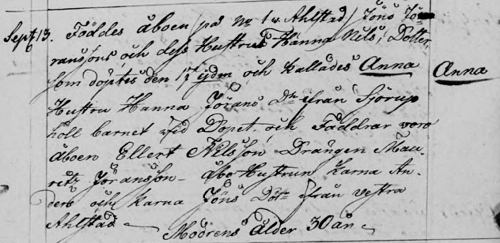 Sept 13. Föddes åboen på No 1 v. Ahlstad Jöns Jö-
ransons och dess Hustrus Hanna Nils Dotter,
som döptes den 17 ejdm och kallades Anna Anna
Hustru Hanna Jörans Dr ifrån Sjörup
höll barnet vid Dopet, och Faddrar voro
åboen Ellert Nilsson Drängen Mau
ritz Jöransson åbo Hustrun Karna An
ders och Karna Jöns Dotr ifrån vestra
Ahlstad Modrens ålder 30 år